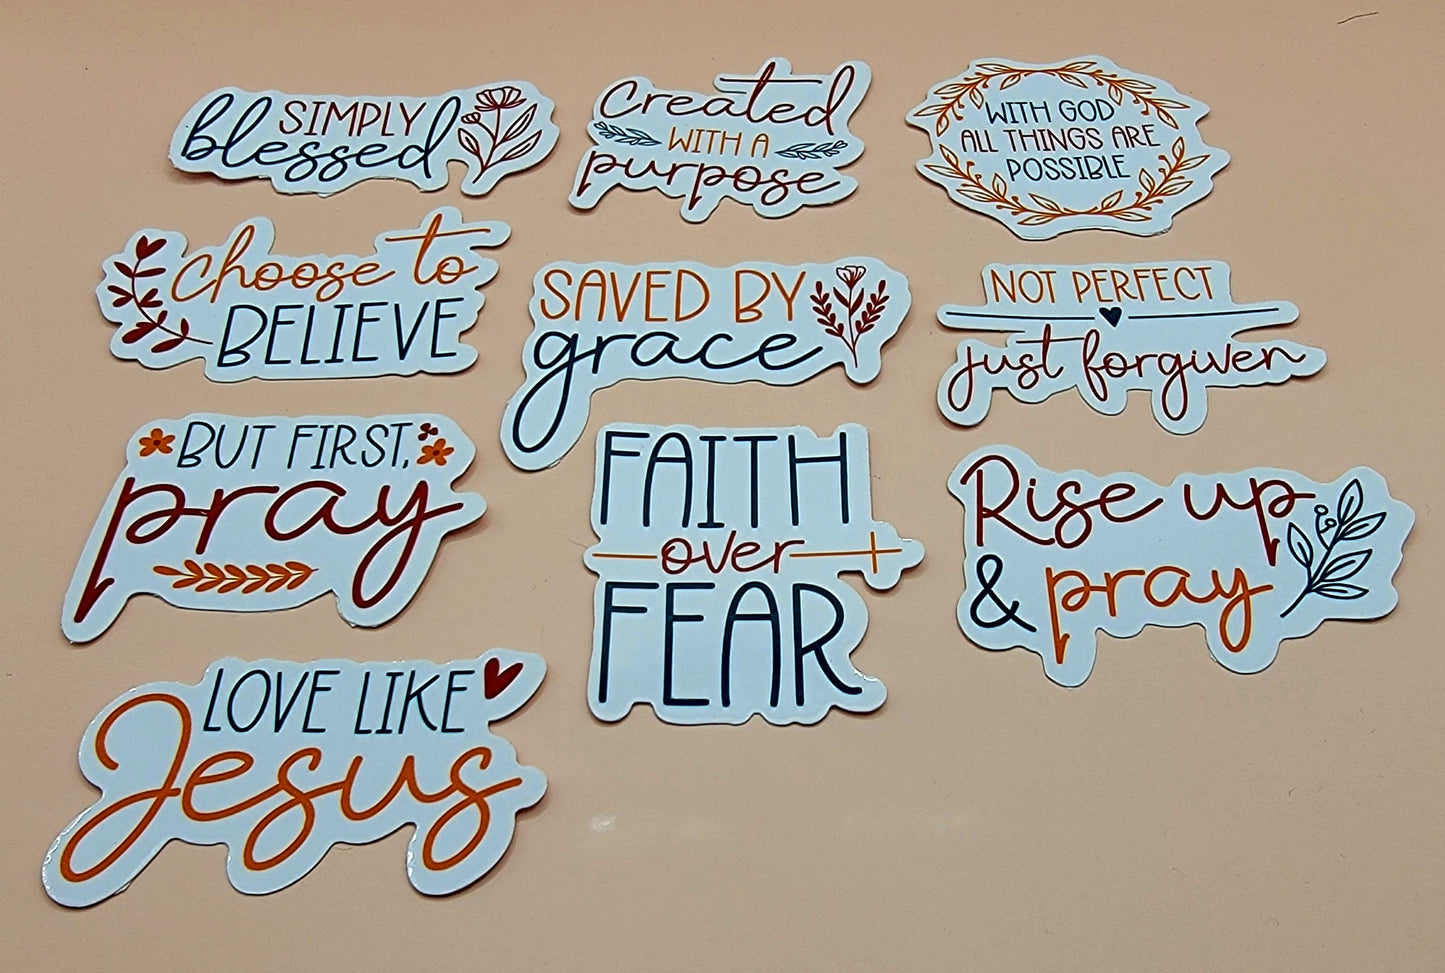 SIMPLY
blessed
Created
WITH A
purpose
WITH GOD
ALL THINGS ARE
POSSIBLE
choose to
BELIEVE
SAVED BY
grace
NOT PERFECT
just forgiven
BUT FIRST,
pray
FAITH
over
FEAR
Rise up
& pray
LOVE LIKE
Jesus